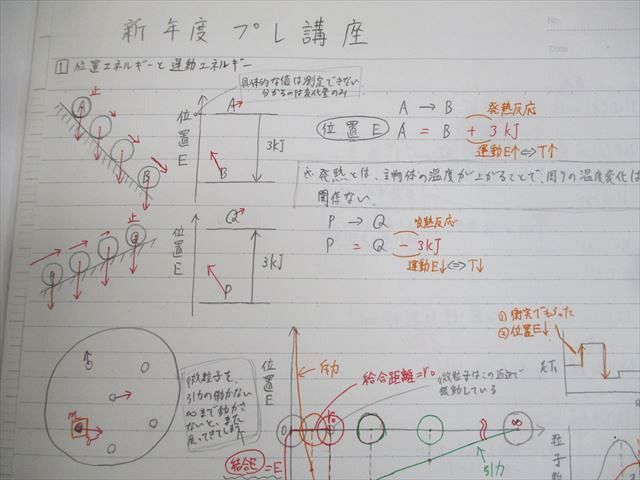 No.
Date
新年度プレ講座
1 位置エネルギーと運動エネルギー
具体的な値は測定できない
分かるのは変化量のみ
止
A
B
位置E
A
3kJ
B
A → B 発熱反応
位置E A = B + 3kJ
運動E↑⇔T↑
※発熱とは、主物体の温度が上がることで、周りの温度変化は
関係ない.
止
位置E
Q
3kJ
P
P → Q 吸熱反応
P = Q - 3kJ
運動E↓⇔T↓
①衝突でもらった
②位置E↓
m
微粒子を、
引力の働かない
∞まで動かさ
ないと、また
戻ってきてしまう
位置E
斥力
結合距離=r0
微粒子はこの近辺で
振動している
0
r0
∞
引力
結合E = E
粒子数